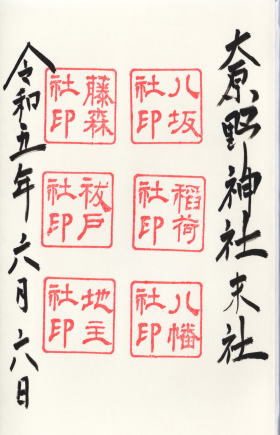 大原野神社末社
八坂社印
稲荷社印
八幡社印
藤森社印
祓戸社印
地主社印
令和五年六月六日